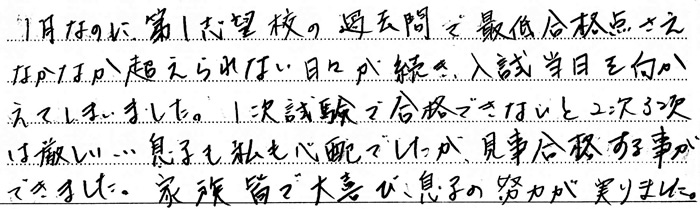 1月なのに第1志望校の過去問で最低合格点さえ
なかなか超えられない日々が続き、入試当日を向か
えてしまいました。1次試験で合格できないと2次3次
は厳しい…息子も私も心配でしたが、見事合格する事が
できました。家族皆で大喜び、息子の努力が実りました。